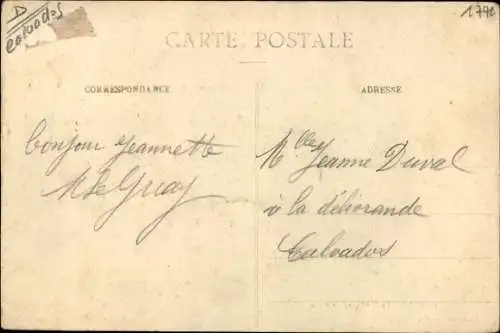 D
Calvados
1791
CARTE POSTALE
CORRESPONDANCE
ADRESSE
bonjour Jeannette
M Le Guay
Mlle Jeanne Duval
à la délivrande
Calvados